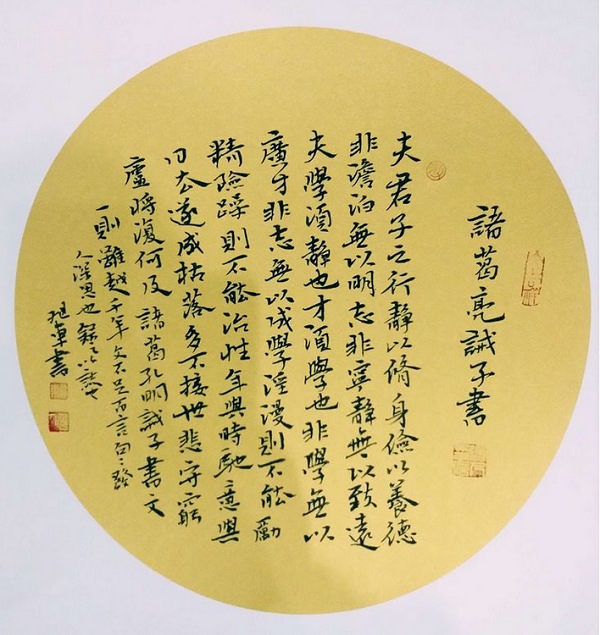 諸葛亮誡子書
夫君子之行靜以脩身儉以養德
非澹泊無以明志非寧靜無以致遠
夫學須靜也才須學也非學無以
廣才非志無以成學淫漫則不能勵
精險躁則不能治性年與時馳意與
日去遂成枯落多不接世悲守窮
廬將復何及諸葛孔明誡子書文
一則雖越千年文不足百言句〻發
人深思也錄之以
書